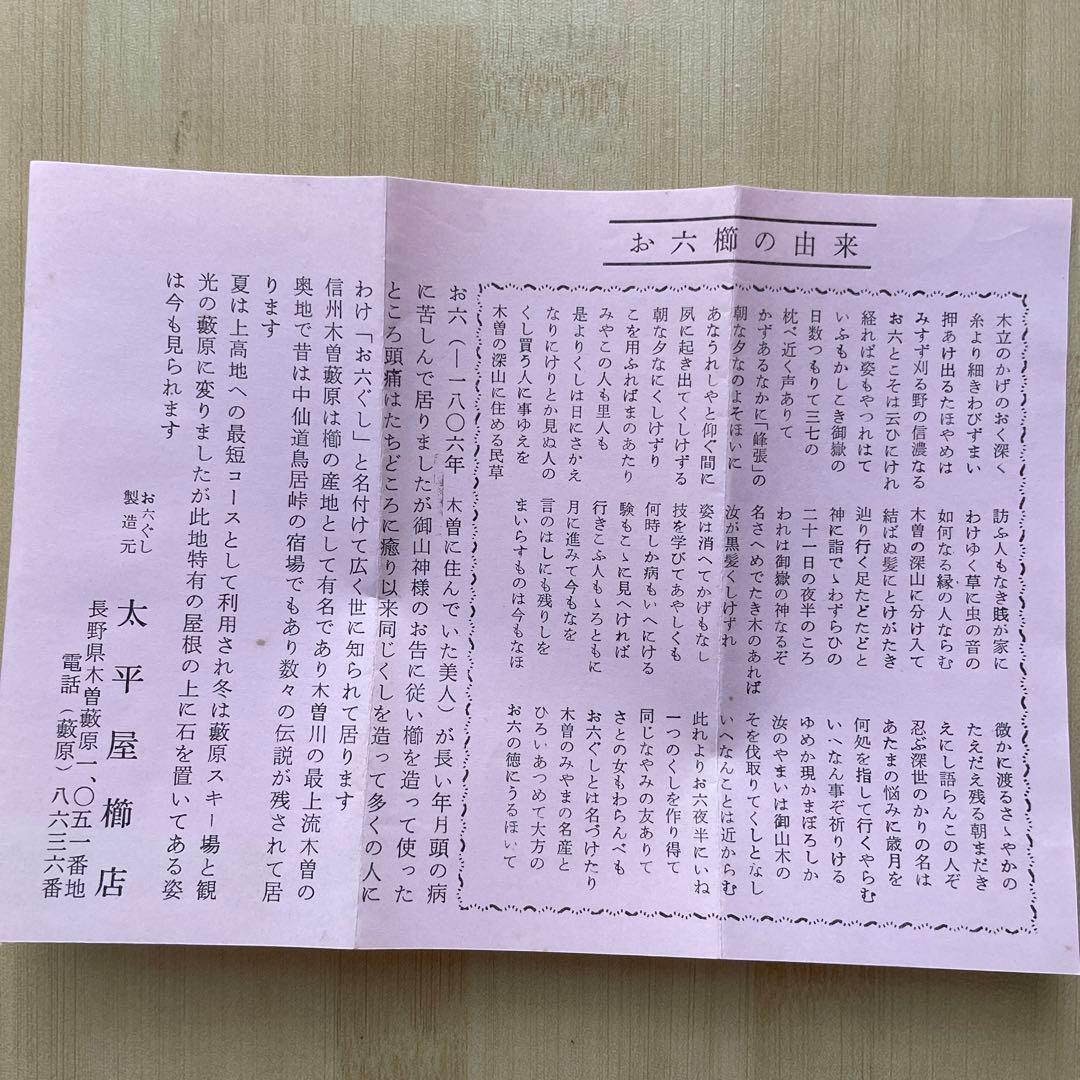 お六櫛の由来
木立のかげのおく深く　訪ふ人もなき賎が家に　微かに渡るさゝやかの
糸より細きわびずまい　わけゆく草に虫の音の　たえだえ残る朝まだき
押あけ出るたほやめは　如何なる縁の人ならむ　えにし語らんこの人ぞ
みすず刈る野の信濃なる　木曽の深山に分け入て　忍ぶ深世のかりの名は
お六とこそは云ひにけれ　結ばぬ髪にとけがたき　あたまの悩みに歳月を
経れば姿もやつれはて　辿り行く足たどたどと　何処を指して行くやらむ
いふもかしこき御嶽の　神に詣でゝわずらひの　いへなん事ぞ祈りける
日数つもりて三七の　二十一日の夜半のころ　ゆめか現かまぼろしか
枕べ近く声ありて　われは御嶽の神なるぞ　汝のやまいは御山木の
かずあるなかに「峰張」の　名さへめでたき木のあれば　そを伐取りてくしとなし
朝な夕なのよそほいに　汝が黒髪くしけずれ　いへなんことは近からむ
あなうれしやと仰ぐ間に　姿は消へてかげもなし　此れよりお六夜半にいね
夙に起き出てくしけずる　技を学びてあやしくも　一つのくしを作り得て
朝な夕なにくしけずり　何時しか病もいへにける　同じなやみの友ありて
こを用ふればまのあたり　験もこゝに見へければ　さとの女もわらんべも
みやこの人も里人も　行きこふ人もゝろともに　お六ぐしとは名づけたり
是よりくしは日にさかえ　月に進みて今もなを　木曽のみやまの名産と
なりにけりとか見ぬ人の　言のはしにも残りしを　ひろいあつめて大方の
くし買う人に事ゆえを　まいらすものは今もなほ　お六の徳にうるほいて
木曽の深山に住める民草
お六（―一八〇六年　木曽に住んでいた美人）が長い年月頭の病
に苦しんで居りましたが御山神様のお告に従い櫛を造って使った
ところ頭痛はたちどころに癒り以来同じくしを造って多くの人に
わけ「お六ぐし」と名付けて広く世に知られて居ります
信州木曽藪原は櫛の産地として有名であり木曽川の最上流木曽の
奥地で昔は中仙道鳥居峠の宿場でもあり数々の伝説が残されて居
ります
夏は上高地への最短コースとして利用され冬は藪原スキー場と観
光の藪原に変りましたが此地特有の屋根の上に石を置いてある姿
は今も見られます
お六ぐし
製造元
太平屋櫛店
長野県木曽藪原一、〇五一番地
電話（藪原）八六三六番